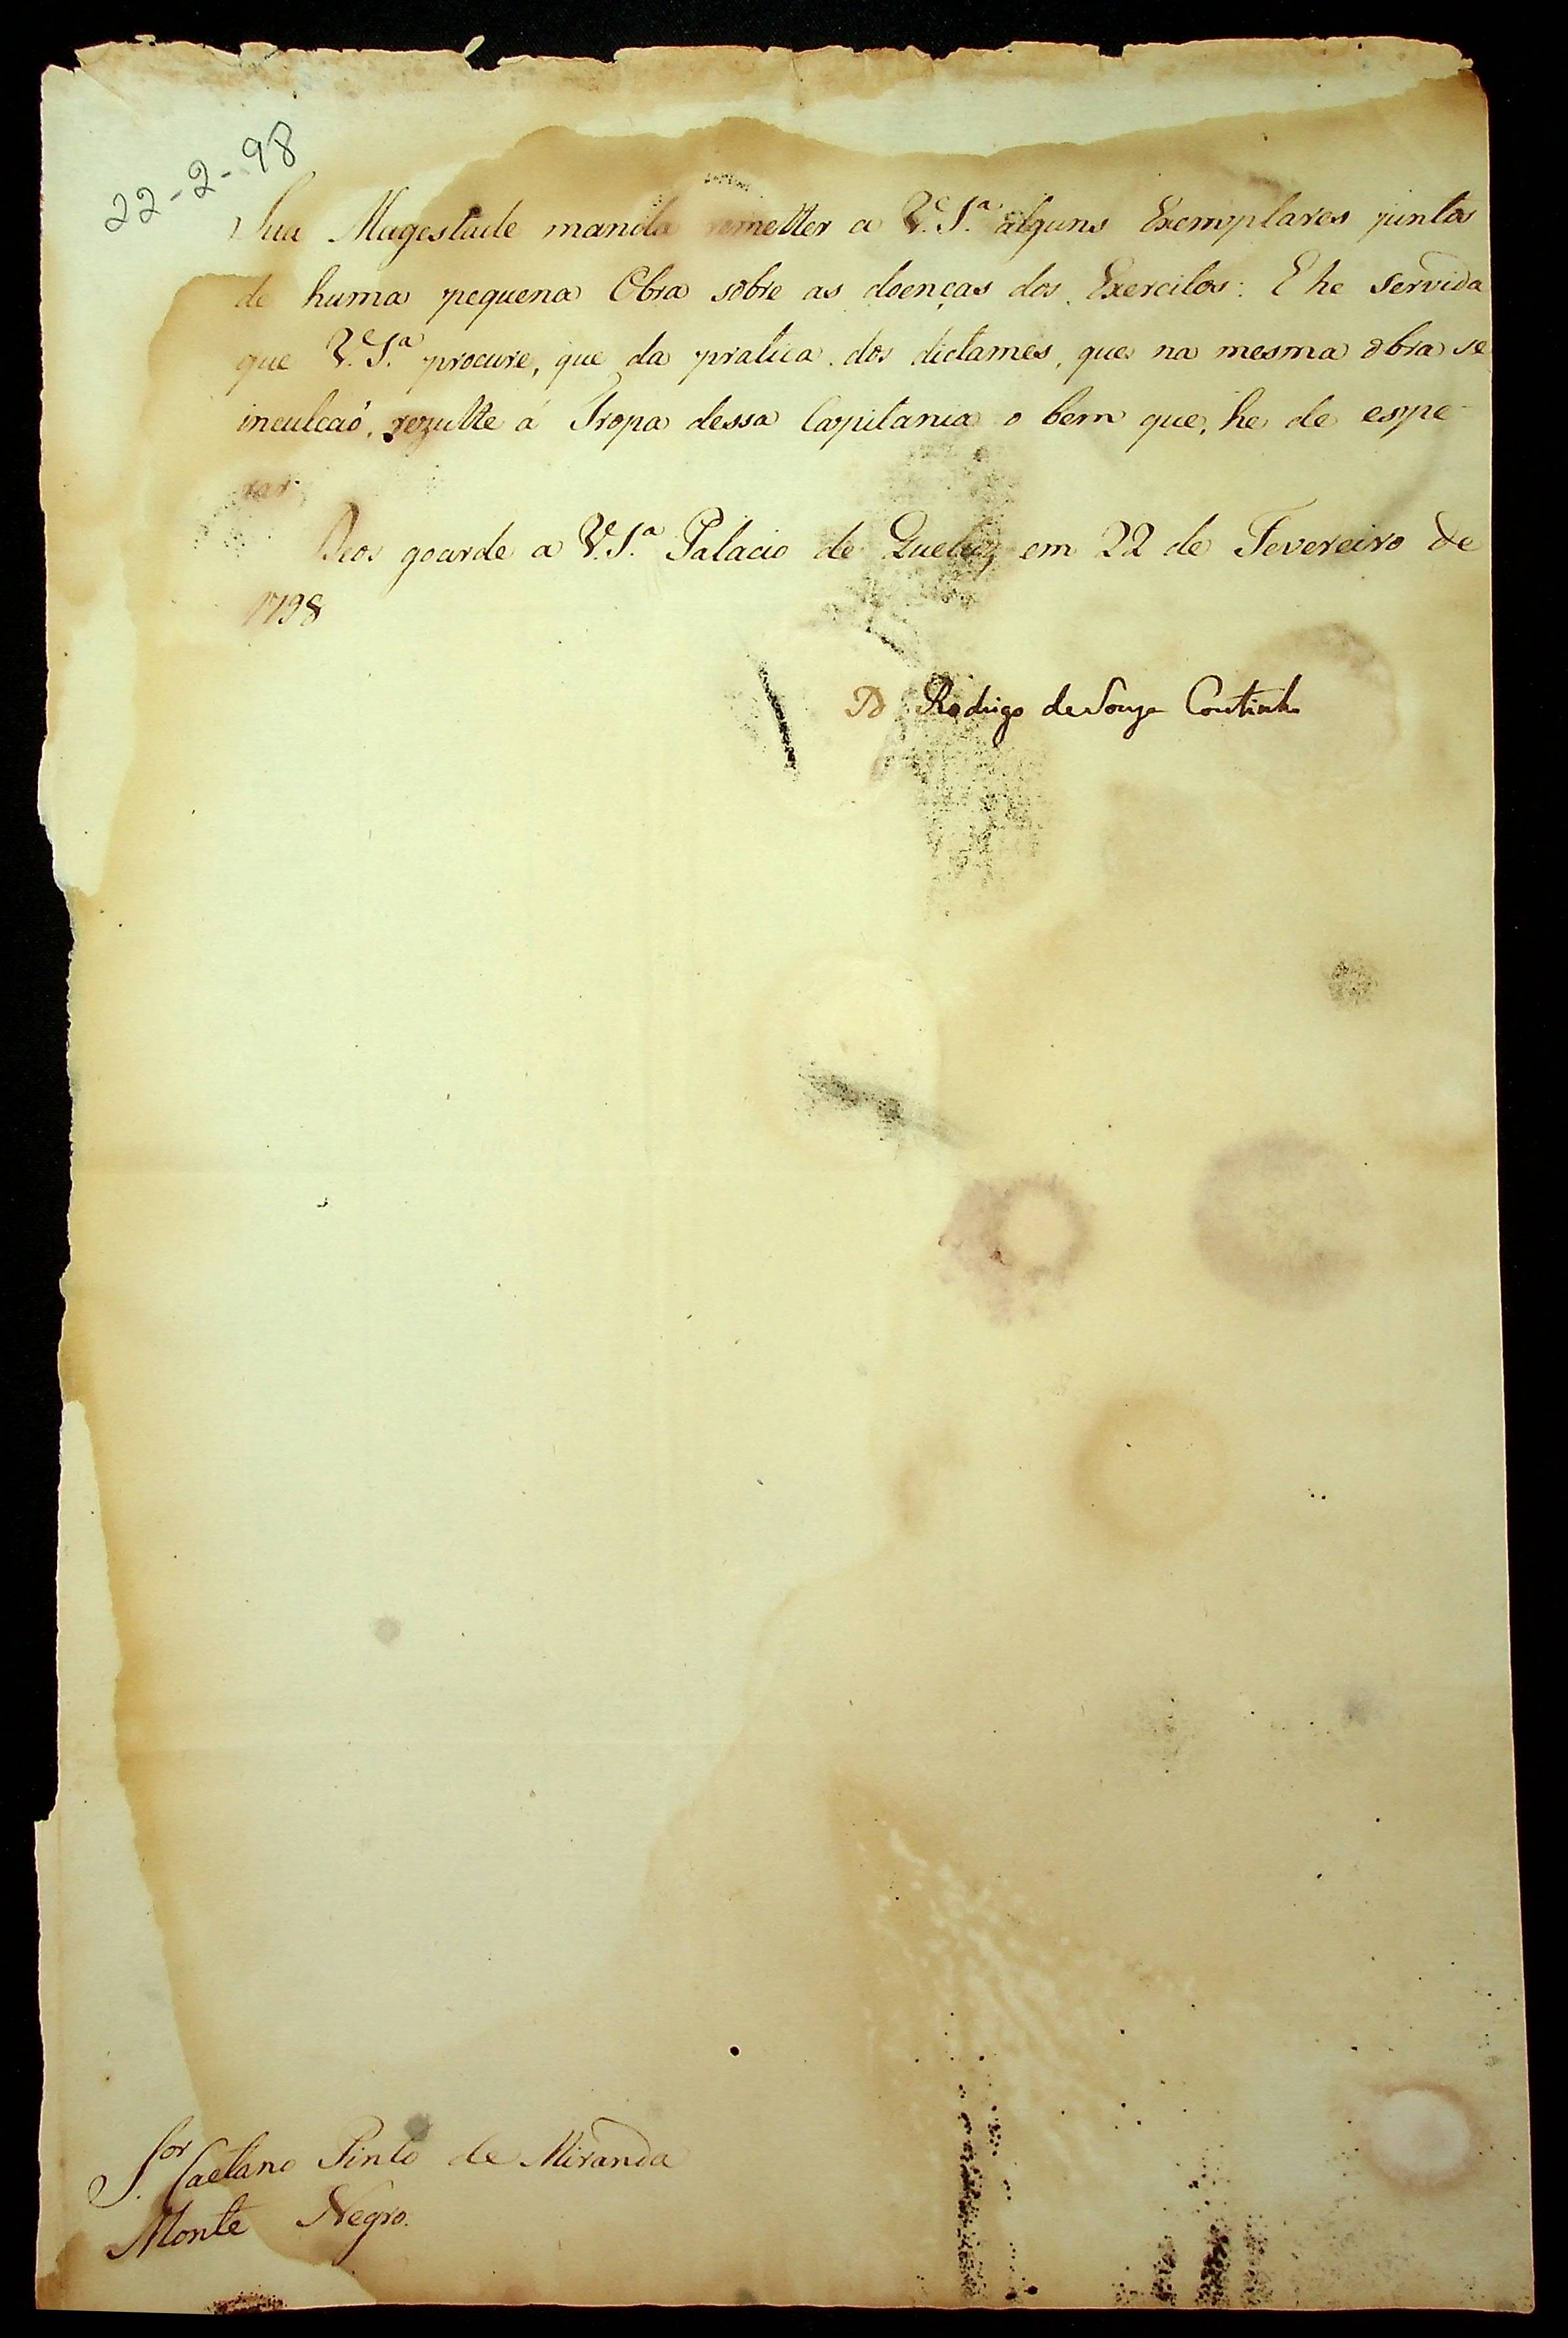 22-2-98
Sua Magestade manda remetter a V. S.ª alguns Exemplares juntos
de huma pequena Obra sobre as doenças dos Exercitos: E he servida
que V. S.ª procure, que da pratica dos dictames, que na mesma obra se
inculcaõ, rezulte á Tropa dessa Capitania o bem que he de espe-
rar.
Deos goarde a V. S.ª Palacio de Queluz em 22 de Fevereiro de
1798
D Rodrigo de Souza Coutinho
S.or Caetano Pinto de Miranda
Monte Negro.